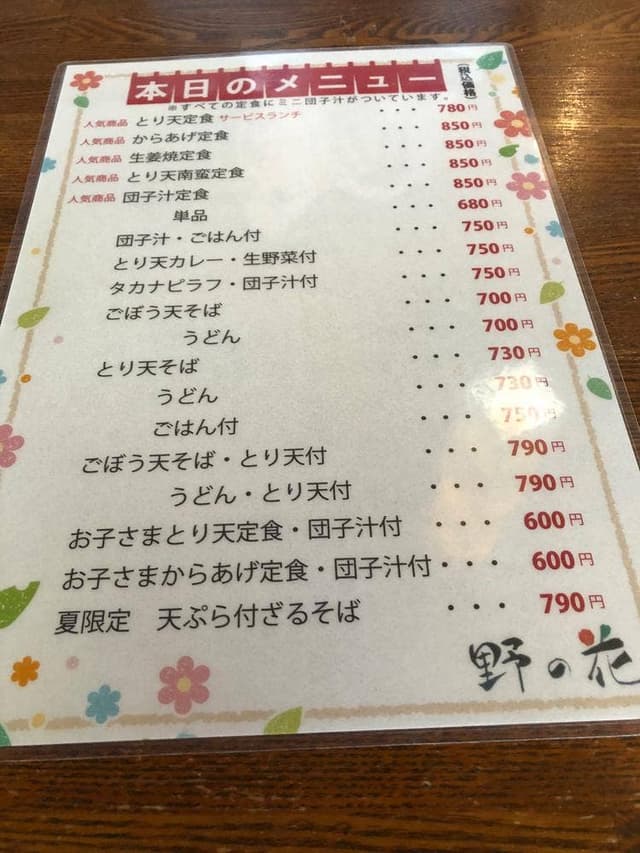 本日のメニュー (税込価格)
※すべての定食にミニ団子汁がついています。
人気商品 とり天定食 サービスランチ ・・・ 780円
人気商品 からあげ定食 ・・・ 850円
人気商品 生姜焼定食 ・・・ 850円
人気商品 とり天南蛮定食 ・・・ 850円
人気商品 団子汁定食 ・・・ 850円
単品 ・・・ 680円
団子汁・ごはん付 ・・・ 750円
とり天カレー・生野菜付 ・・・ 750円
タカナピラフ・団子汁付 ・・・ 750円
ごぼう天そば ・・・ 700円
うどん ・・・ 700円
とり天そば ・・・ 730円
うどん ・・・ 730円
ごはん付 ・・・ 750円
ごぼう天そば・とり天付 ・・・ 790円
うどん・とり天付 ・・・ 790円
お子さまとり天定食・団子汁付 ・・・ 600円
お子さまからあげ定食・団子汁付 ・・・ 600円
夏限定 天ぷら付ざるそば ・・・ 790円
野の花